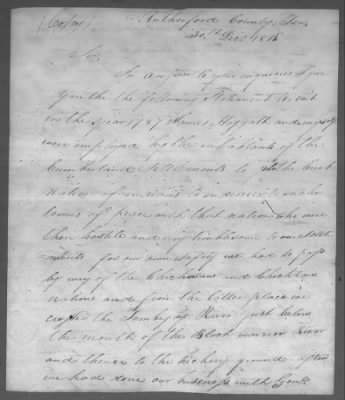 (Copy) Rutherford County, Ten
30th Decr 1815
Sir
In answer to your inquiries I give
you the following statement to wit
in the year 1787 James Hoggatt and myself
were employed by the inhabitants of the
Cumberland settlements to the Creek
nation of indians to indeavor to make
terms of peace with that nation who were
then hostile and very troublesome to our settle
=ments for our own safety we had to pass
by way of the Chickasaw and Chocktaw
nations and from the latter place we
crossed the Tombigby River just below
the mouth of the Black warrior River
and thence to the hickory ground after
we had done our business with Genl.